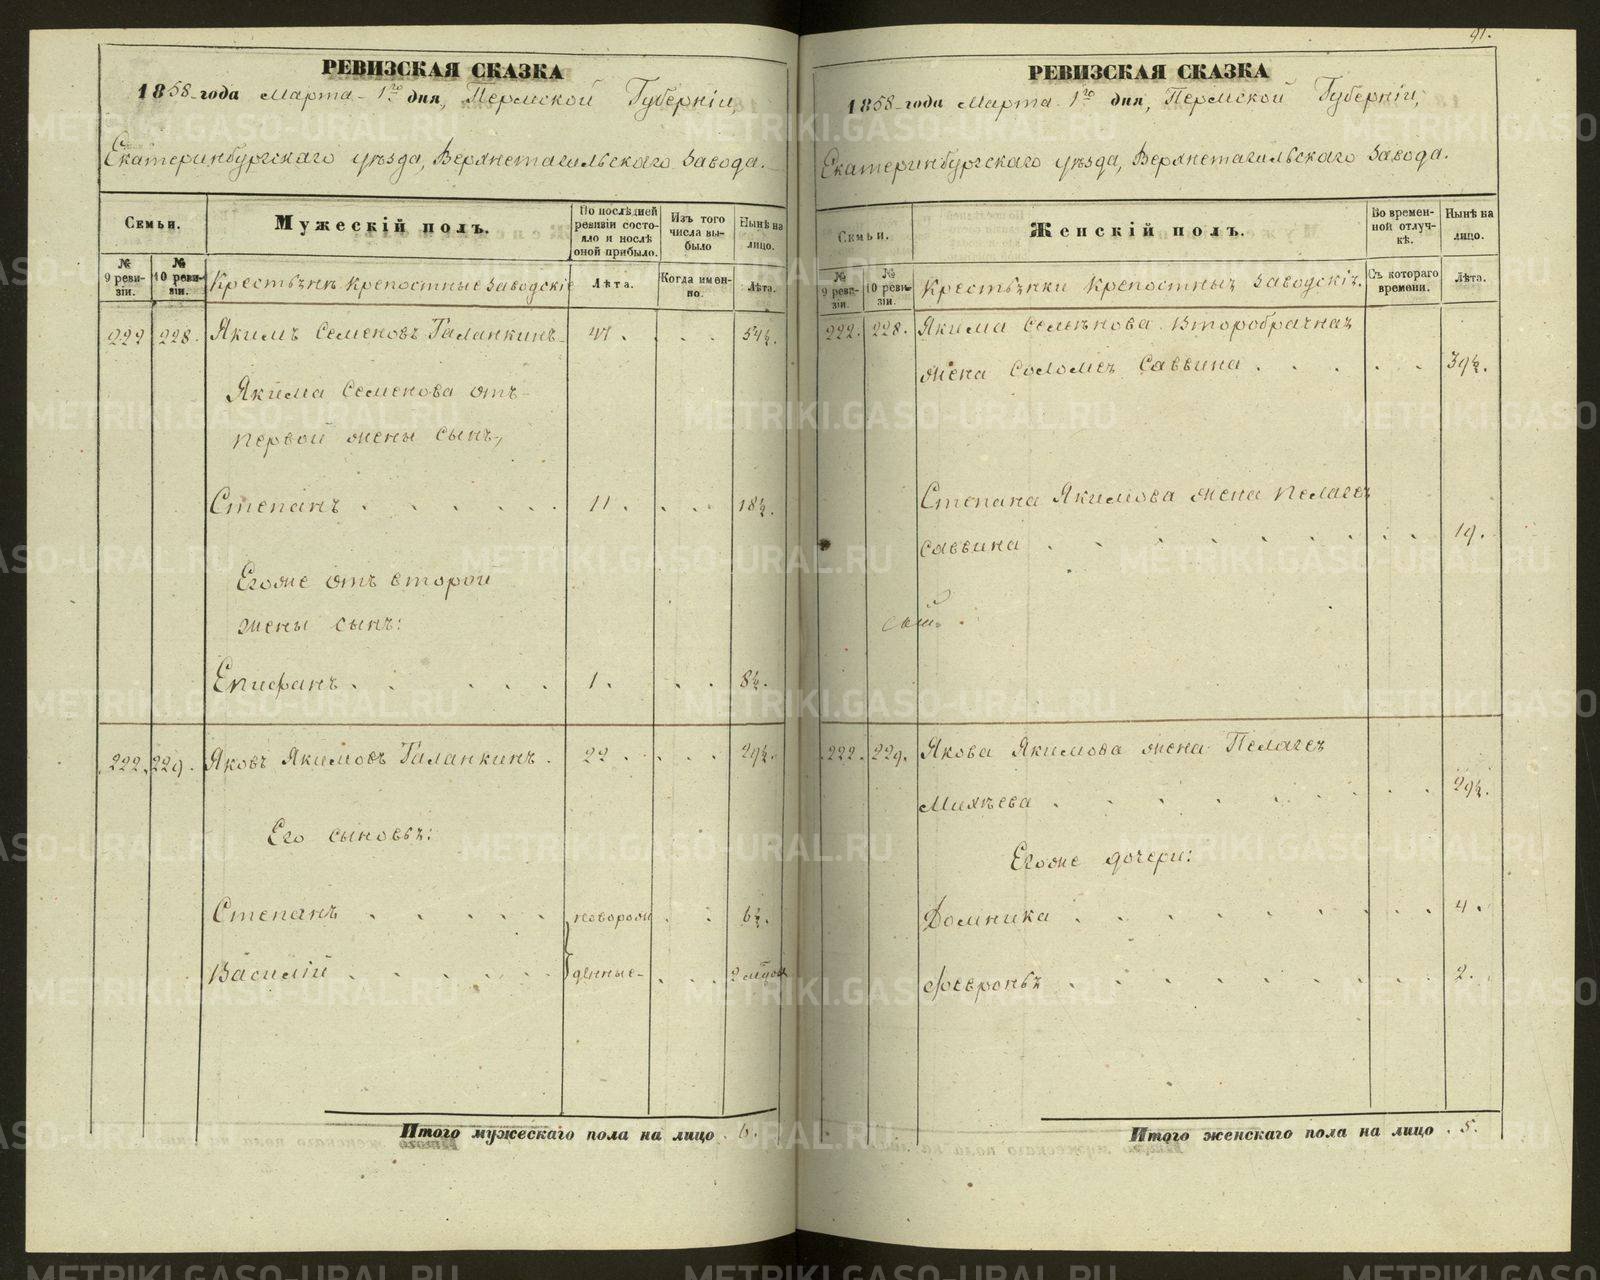 РЕВИЗСКАЯ СКАЗКА
1858 года Марта 1го дня, Пермской Губерніи,
Екатеринбургскаго уѣзда, Верхнетагильскаго Завода.
Семьи.
Мужескій полъ.
По послѣдней ревизіи состояло и послѣ оной прибыло.
Изъ того числа выбыло
Нынѣ на лицо.
№ 9 ревизіи.
№ 10 ревизіи.
Крестьяне крепостные Заводскіе
Лѣта.
Когда именно.
Лѣта.
222 228. Якимъ Семеновъ Галанкинъ 47. 54½.
Якима Семенова отъ
первой жены сынъ,
Степанъ 11. 18½.
Егоже отъ второй
жены сынъ:
Епифанъ 1. 8½.
222. 229. Яковъ Якимовъ Галанкинъ. 22. 29½.
Его сыновья:
Степанъ новорож 6½.
Василій денные
Итого мужескаго пола на лицо 6.
91.
РЕВИЗСКАЯ СКАЗКА
1858 года Марта 1го дня, Пермской Губерніи,
Екатеринбургскаго уѣзда, Верхнетагильскаго Завода.
Семьи.
Женскій полъ.
Во временной отлучкѣ.
Нынѣ на лицо.
№ 9 ревизіи.
№ 10 ревизіи.
Крестьянки крепостныя Заводскія.
Съ котораго времени.
Лѣта.
222. 228. Якима Семенова второбрачная
жена Соломея Саввина 39½.
Степана Якимова жена Пелагея
Саввина 19.
222. 229. Якова Якимова жена Пелагея
Михѣева 29½.
Егоже дочери:
Домника 4.
Февронья 2.
Итого женскаго пола на лицо 5.
METRIKI.GASO-URAL.RU